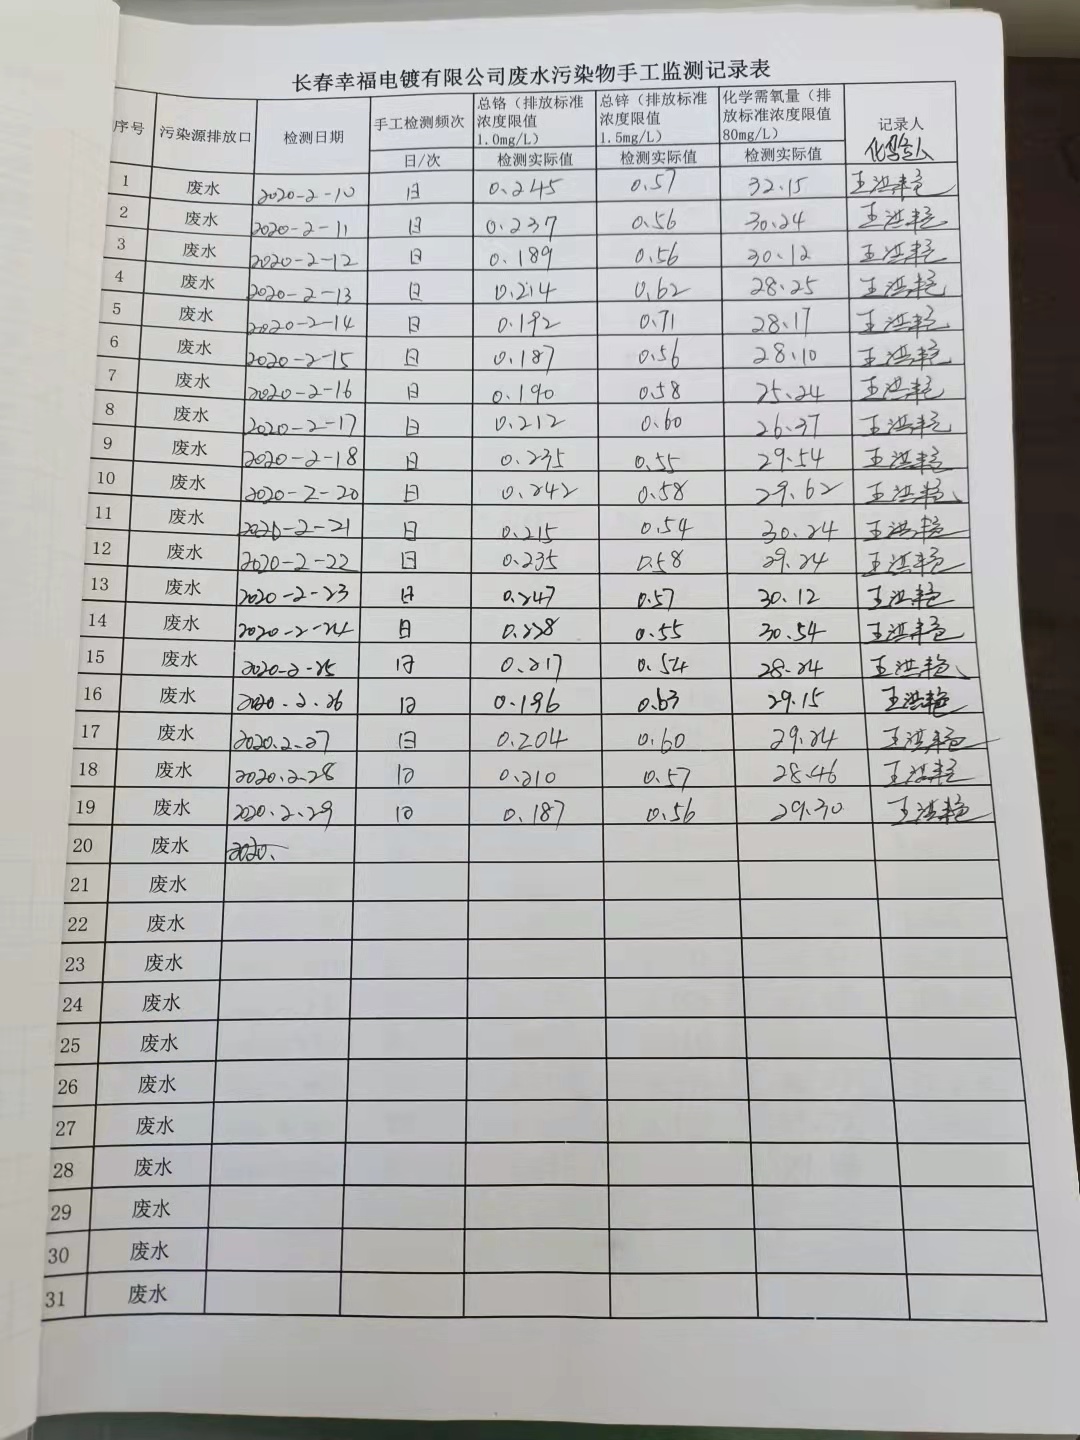 长春幸福电镀有限公司废水污染物手工监测记录表
序号 污染源排放口 检测日期 手工检测频次 总铬（排放标准浓度限值1.0mg/L） 总锌（排放标准浓度限值1.5mg/L） 化学需氧量（排放标准浓度限值80mg/L） 记录人
日/次 检测实际值 检测实际值 检测实际值 化验人
1 废水 2020-2-10 日 0.245 0.57 32.15 王洪艳
2 废水 2020-2-11 日 0.237 0.56 30.24 王洪艳
3 废水 2020-2-12 日 0.189 0.56 30.12 王洪艳
4 废水 2020-2-13 日 0.214 0.62 28.25 王洪艳
5 废水 2020-2-14 日 0.192 0.71 28.17 王洪艳
6 废水 2020-2-15 日 0.187 0.56 28.10 王洪艳
7 废水 2020-2-16 日 0.190 0.58 25.24 王洪艳
8 废水 2020-2-17 日 0.212 0.60 26.37 王洪艳
9 废水 2020-2-18 日 0.235 0.55 29.54 王洪艳
10 废水 2020-2-20 日 0.242 0.58 29.62 王洪艳
11 废水 2020-2-21 日 0.215 0.54 30.24 王洪艳
12 废水 2020-2-22 日 0.235 0.58 29.24 王洪艳
13 废水 2020-2-23 日 0.247 0.57 30.12 王洪艳
14 废水 2020-2-24 日 0.228 0.55 30.54 王洪艳
15 废水 2020-2-25 日 0.217 0.54 28.24 王洪艳
16 废水 2020.2.26 日 0.196 0.63 29.15 王洪艳
17 废水 2020.2.27 日 0.204 0.60 29.24 王洪艳
18 废水 2020.2.28 日 0.210 0.57 28.46 王洪艳
19 废水 2020.2.29 日 0.187 0.56 29.30 王洪艳
20 废水 2020.
21 废水
22 废水
23 废水
24 废水
25 废水
26 废水
27 废水
28 废水
29 废水
30 废水
31 废水